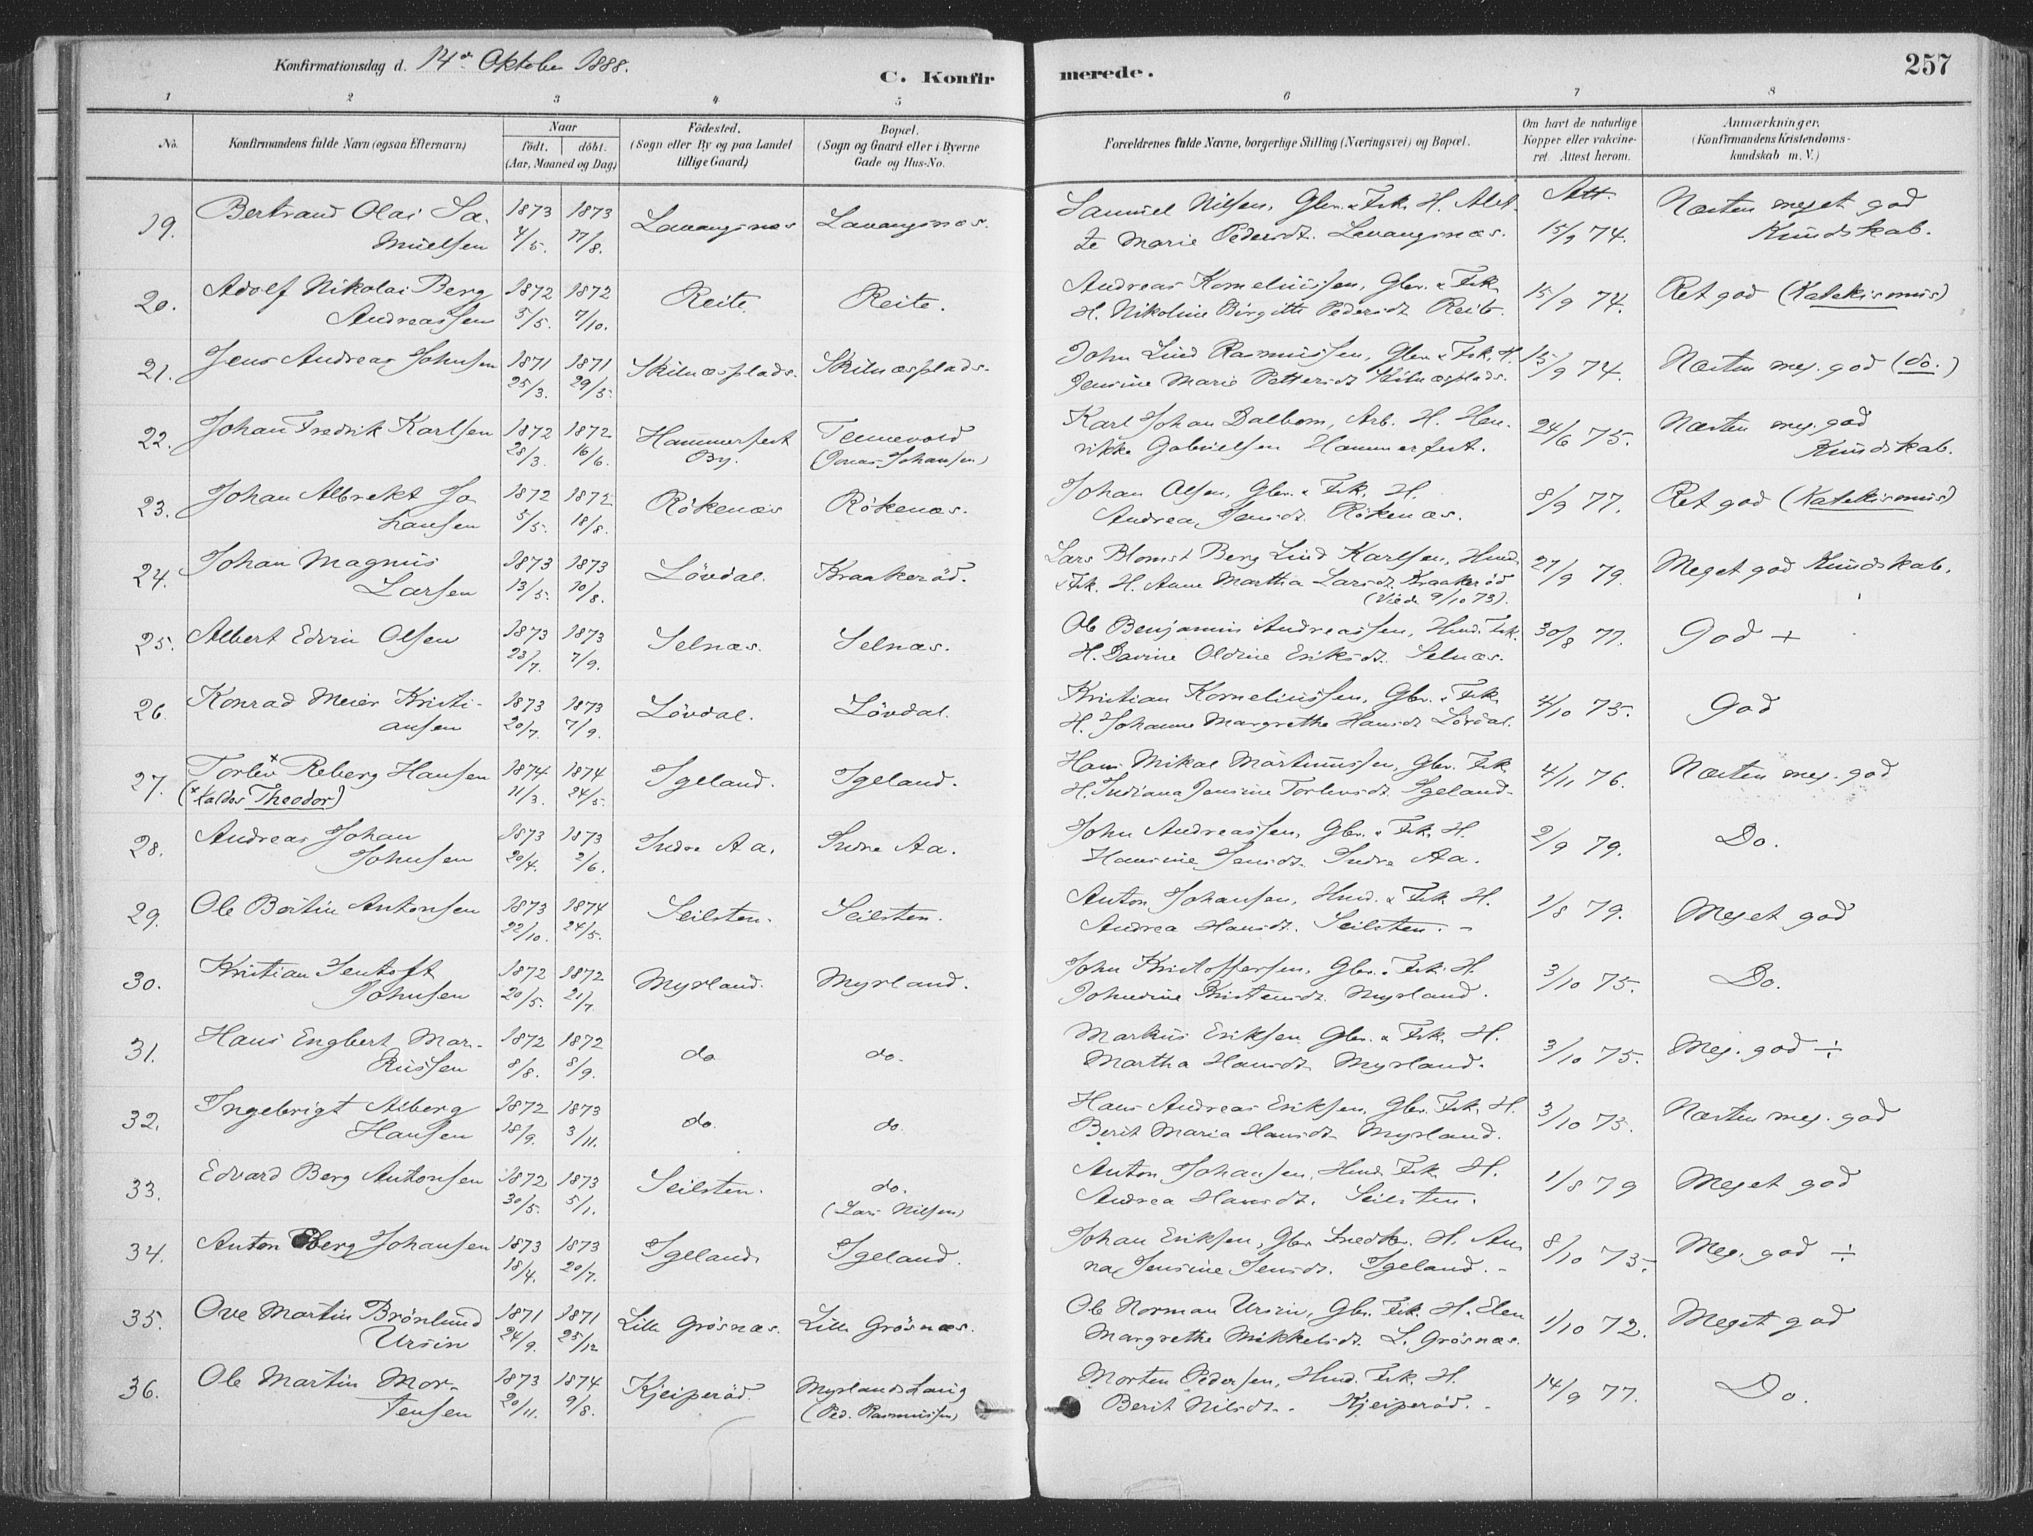 Konfirmationsdag d. 14de Oktober 1888.
C. Konfirmerede.
257
1 2 3 4 5 6 7 8
No. Konfirmandens fulde Navn (ogsaa Efternavn) Naar födt. döbt. (Aar, Maaned og Dag) Födested. (Sogn eller By og paa Landet tillige Gaard) Bopæl. (Sogn og Gaard eller i Byerne Gade og Hus-No. Forældrenes fulde Navne, borgerlige Stilling (Næringsvei) og Bopæl. Om havt de naturlige Kopper eller vakcineret. Attest herom. Anmærkninger. (Konfirmandens Kristendomskundskab m. V.)
19. Bertrand Olai Sa- 1873 1873 Lavangsnæs Lavangsnæs. Samuel Nilsen, Gbr. & Fsk. H. Alet- Att. Næsten meget god
muelsen 4/5. 17/8. te Marie Pedersdt. Lavangsnæs. 15/9 74. Kundskab.
20. Adolf Nikolai Berg 1872 1872 Reite Reite. Andreas Korneliussen, Gbr. & Fsk. 15/9 74. Ret god (Katekismus)
Andreassen 5/5. 7/10. H. Nikoline Birgitte Pedersdt. Reite.
21. Jens Andreas Johnsen 1871 1871 Skilnæsplads. Skilnæsplads. John Lind Rasmussen, Gbr. & Fsk. H. 15/9 74. Næsten meg. god (do.)
25/3. 29/5. Jensine Marie Pettersdt. Skilnæsplads.
22. Johan Fredrik Karlsen 1872 1872 Hammerfest Tennevold Karl Johan Dalbom, Arb. H. Hen- 24/6 75. Næsten meg. god
28/3. 16/6. By. (Jonas Johansen) rikke Gabrielsen Hammerfest. Kundskab.
23. Johan Albrekt Jo- 1872 1872 Rökenæs Rökenæs. Johan Olsen, Gbr. & Fsk. H. 8/9 77. Ret god (Katekismus)
hansen 5/5. 18/8. Andrea Jensdt. Rökenæs.
24. Johan Magnus 1873 1873 Lövdal. Kraakeröd. Lars Blomst Berg Lind Karlsen, Hmd. 27/9 79. Meget god Kundskab.
Larsen 13/5. 10/8. & Fsk. H. Anne Martha Larsdt. Kraakeröd
(Viede 9/10 73).
25. Albert Edvin Olsen 1873 1873 Selnæs. Selnæs. Ole Benjamin Andreassen, Hmd. Fsk. 30/8 77. God +
23/7. 7/9. H. Davine Oldine Eriksdt. Selnæs.
26. Konrad Meier Kristi- 1873 1873 Lövdal. Lövdal. Kristian Korneliussen, Gbr. & Fsk. 4/10 75. God
ansen 20/7. 7/9. H. Johanne Margrethe Hansdt. Lövdal.
27. Torlev x Reberg Hansen 1874 1874 Igeland. Igeland. Hans Mikal Martinussen, Gbr. Fsk. 4/11 76. Næsten meg. god
(x kaldes Theodor) 11/3. 24/5. H. Indiana Jensine Torlevsdt. Igeland.
28. Andreas Johan 1873 1873 Indre Aa. Indre Aa. John Andreassen, Gbr. & Fsk. H. 2/9 79. Do.
Johnsen 20/4. 2/6. Hansine Jensdt. Indre Aa.
29. Ole Bertin Antonsen 1873 1874 Seilsten. Seilsten. Anton Johansen, Hmd. & Fsk. H. 1/8 79. Meget god
22/10. 24/5. Andrea Hansdt. Seilsten.
30. Kristian Sentoft 1872 1872 Myrland. Myrland. John Kristoffersen, Gbr. Fsk. H. 3/10 75. Do.
Johnsen 20/5. 21/7. Johnsine Kristensdt. Myrland.
31. Hans Engbert Mar- 1872 1872 do do. Markus Eriksen Gbr. & Fsk. H. 3/10 75. Meg. god ÷
kussen 8/8. 8/9. Martha Hansdt. Myrland.
32. Ingebrigt Aiberg 1872 1873 do. do. Hans Andreas Eriksen, Gbr. Fsk. H. 3/10 75. Næsten meg. god
Hansen 18/9. 3/11. Berit Maria Hansdt. Myrland.
33. Edvard Berg Antonsen 1872 1873 Seilsten. do. Anton Johansen, Hmd. Fsk. H. 1/8 79 Meget god
30/5. 5/1. (Lars Nilsen) Andrea Hansdt. Seilsten.
34. Anton Eberg Johansen 1873 1873 Igeland. Igeland. Johan Eriksen, Gbr. H. An- 8/10 75. Meg. god ÷
18/4. 20/7. na Jensine Jensdt. Igeland.
35. Ove Martin Brönlund 1871 1871 Lille Grösnæs. Lille Grösnæs. Ole Norman Ursin, Gbr. Fsk. H. Elen 1/10 72. Meget god
Ursin 24/9. 25/12 Margrethe Mikkelsdt. L. Grösnæs.
36. Ole Martin Mor- 1873 1874 Kjeiperöd. Myrlands Laug Morten Pedersen, Hmd. Fsk. H. 14/9 77. Do.
tensen 20/11. 9/8. (Ped. Rasmussen) Berit Nilsdt. Kjeiperöd.